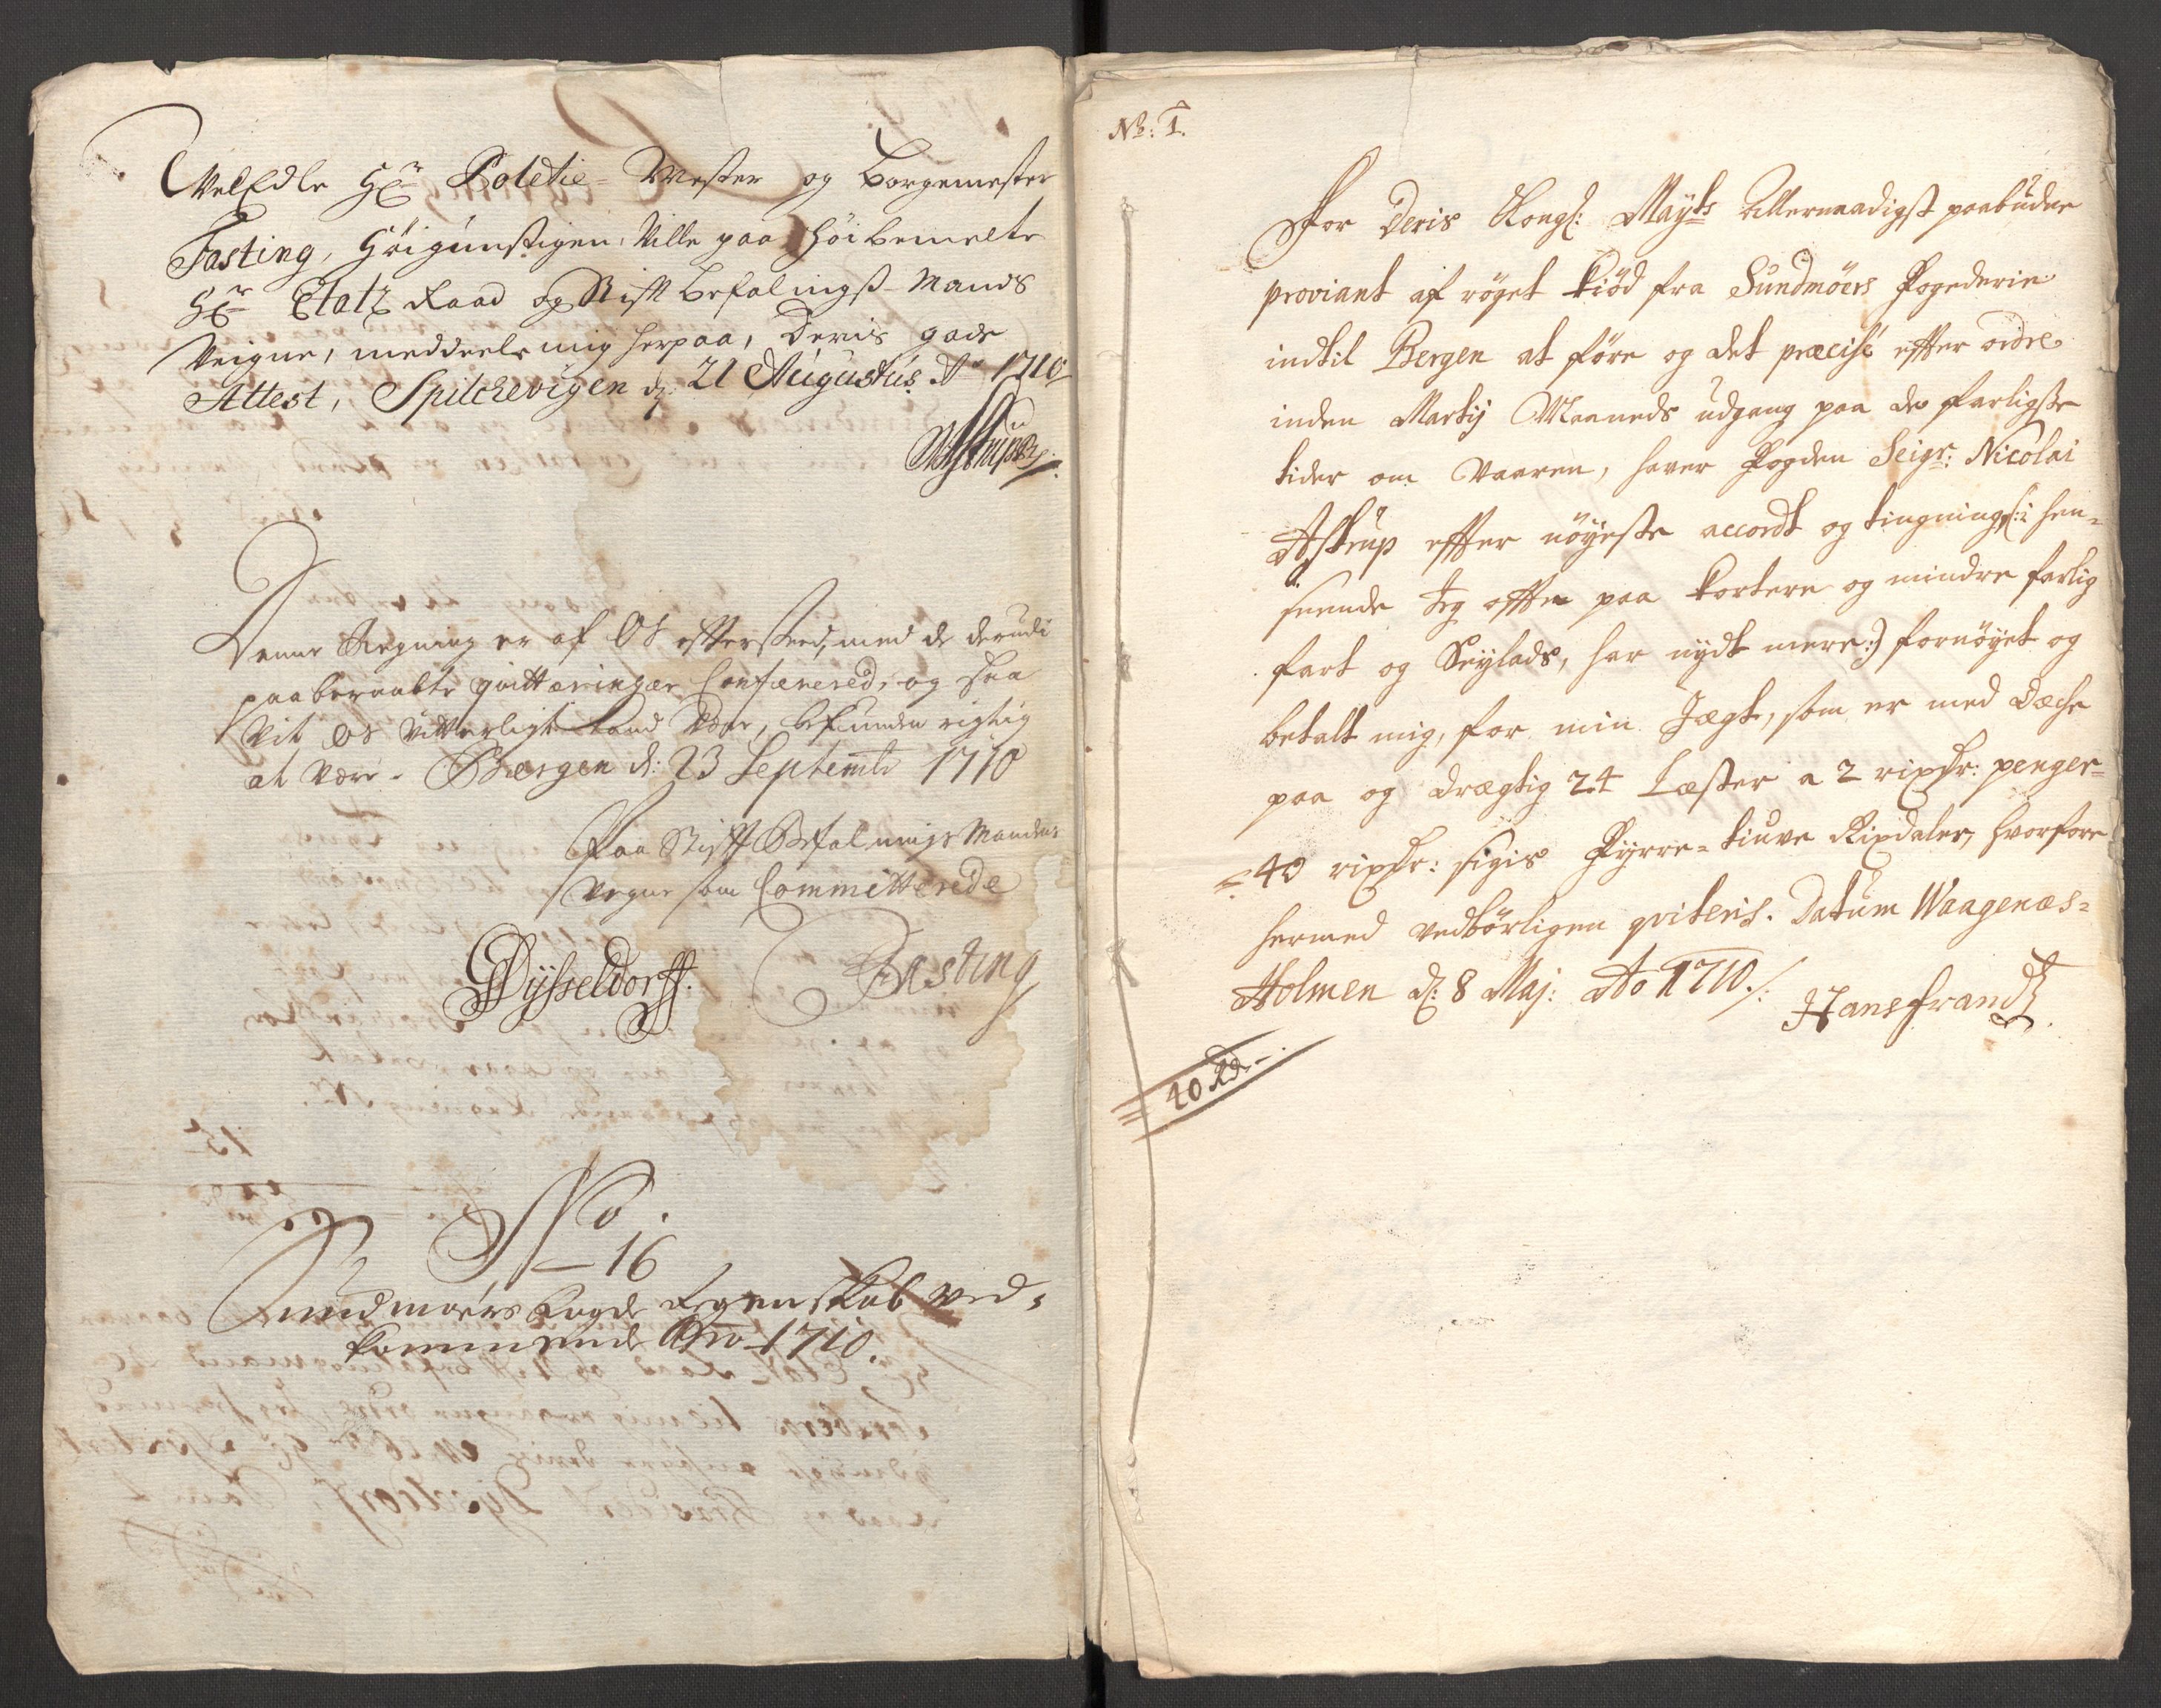 VelEdle Hr Poletie-Mester og Borgemester
Fasting, Høigunstigen Ville paa Høibemelte
Hr Etatz Raad og Stift Befalingsmands
Veigne, meddeele mig herpaa, Deris gode
Attest, Spilchevigen d: 21 Augustus Ao 1710
NAstrup
Denne Regning er af Os efterseed, med de derudi
paaberaabte qvitteringer Confærered, og saa
vit os vitterligt kand være, befunden rigtig
at være. Bergen d: 23 Septembr 1710
Paa Stift Befalnings Mandens
Vegne som Committerede
Dysseldorff. Fasting
No.
16
Sundmørs Fogde Regenskab ved-
kommende Ao 1710.
No: 1.
For Deris Kongl: Mayts Allernaadigst paabudne
proviant af røget Kiød fra Sundmøers Fogederie
indtil Bergen at føre og det præcisè effter ordre
inden Martij Maaneds udgang paa de farligste
tider om Vaaren, haver Fogden Seigr: Nicolai
Astrup effter nøyeste accordt og tingning (: i hen-
seende Jeg offte paa kortere og mindre farlig
fart og Seylads, har nydt mere:) fornøyet og
betalt mig, for min Jægt, som er med Dæche
paa og drægtig 24 Læster a 2 rixdr: penger-
40 rixdr: sigis Fyrre-tiuve Rixdaler, hvorfore
hermed vedbørligen qviteris. Datum Waagenæs-
Holmen d: 8 Maj: Ao 1710./.
Hans Frandtz
40 Rd -.